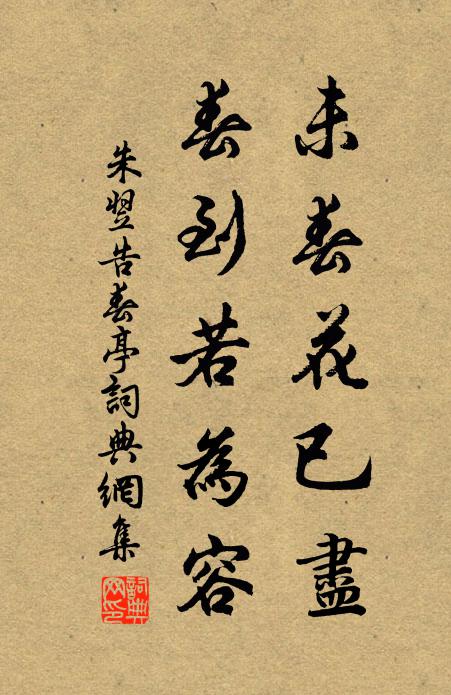 未春花已盡
春到若為容
朱翌告春亭詞典網集
詞典
网印